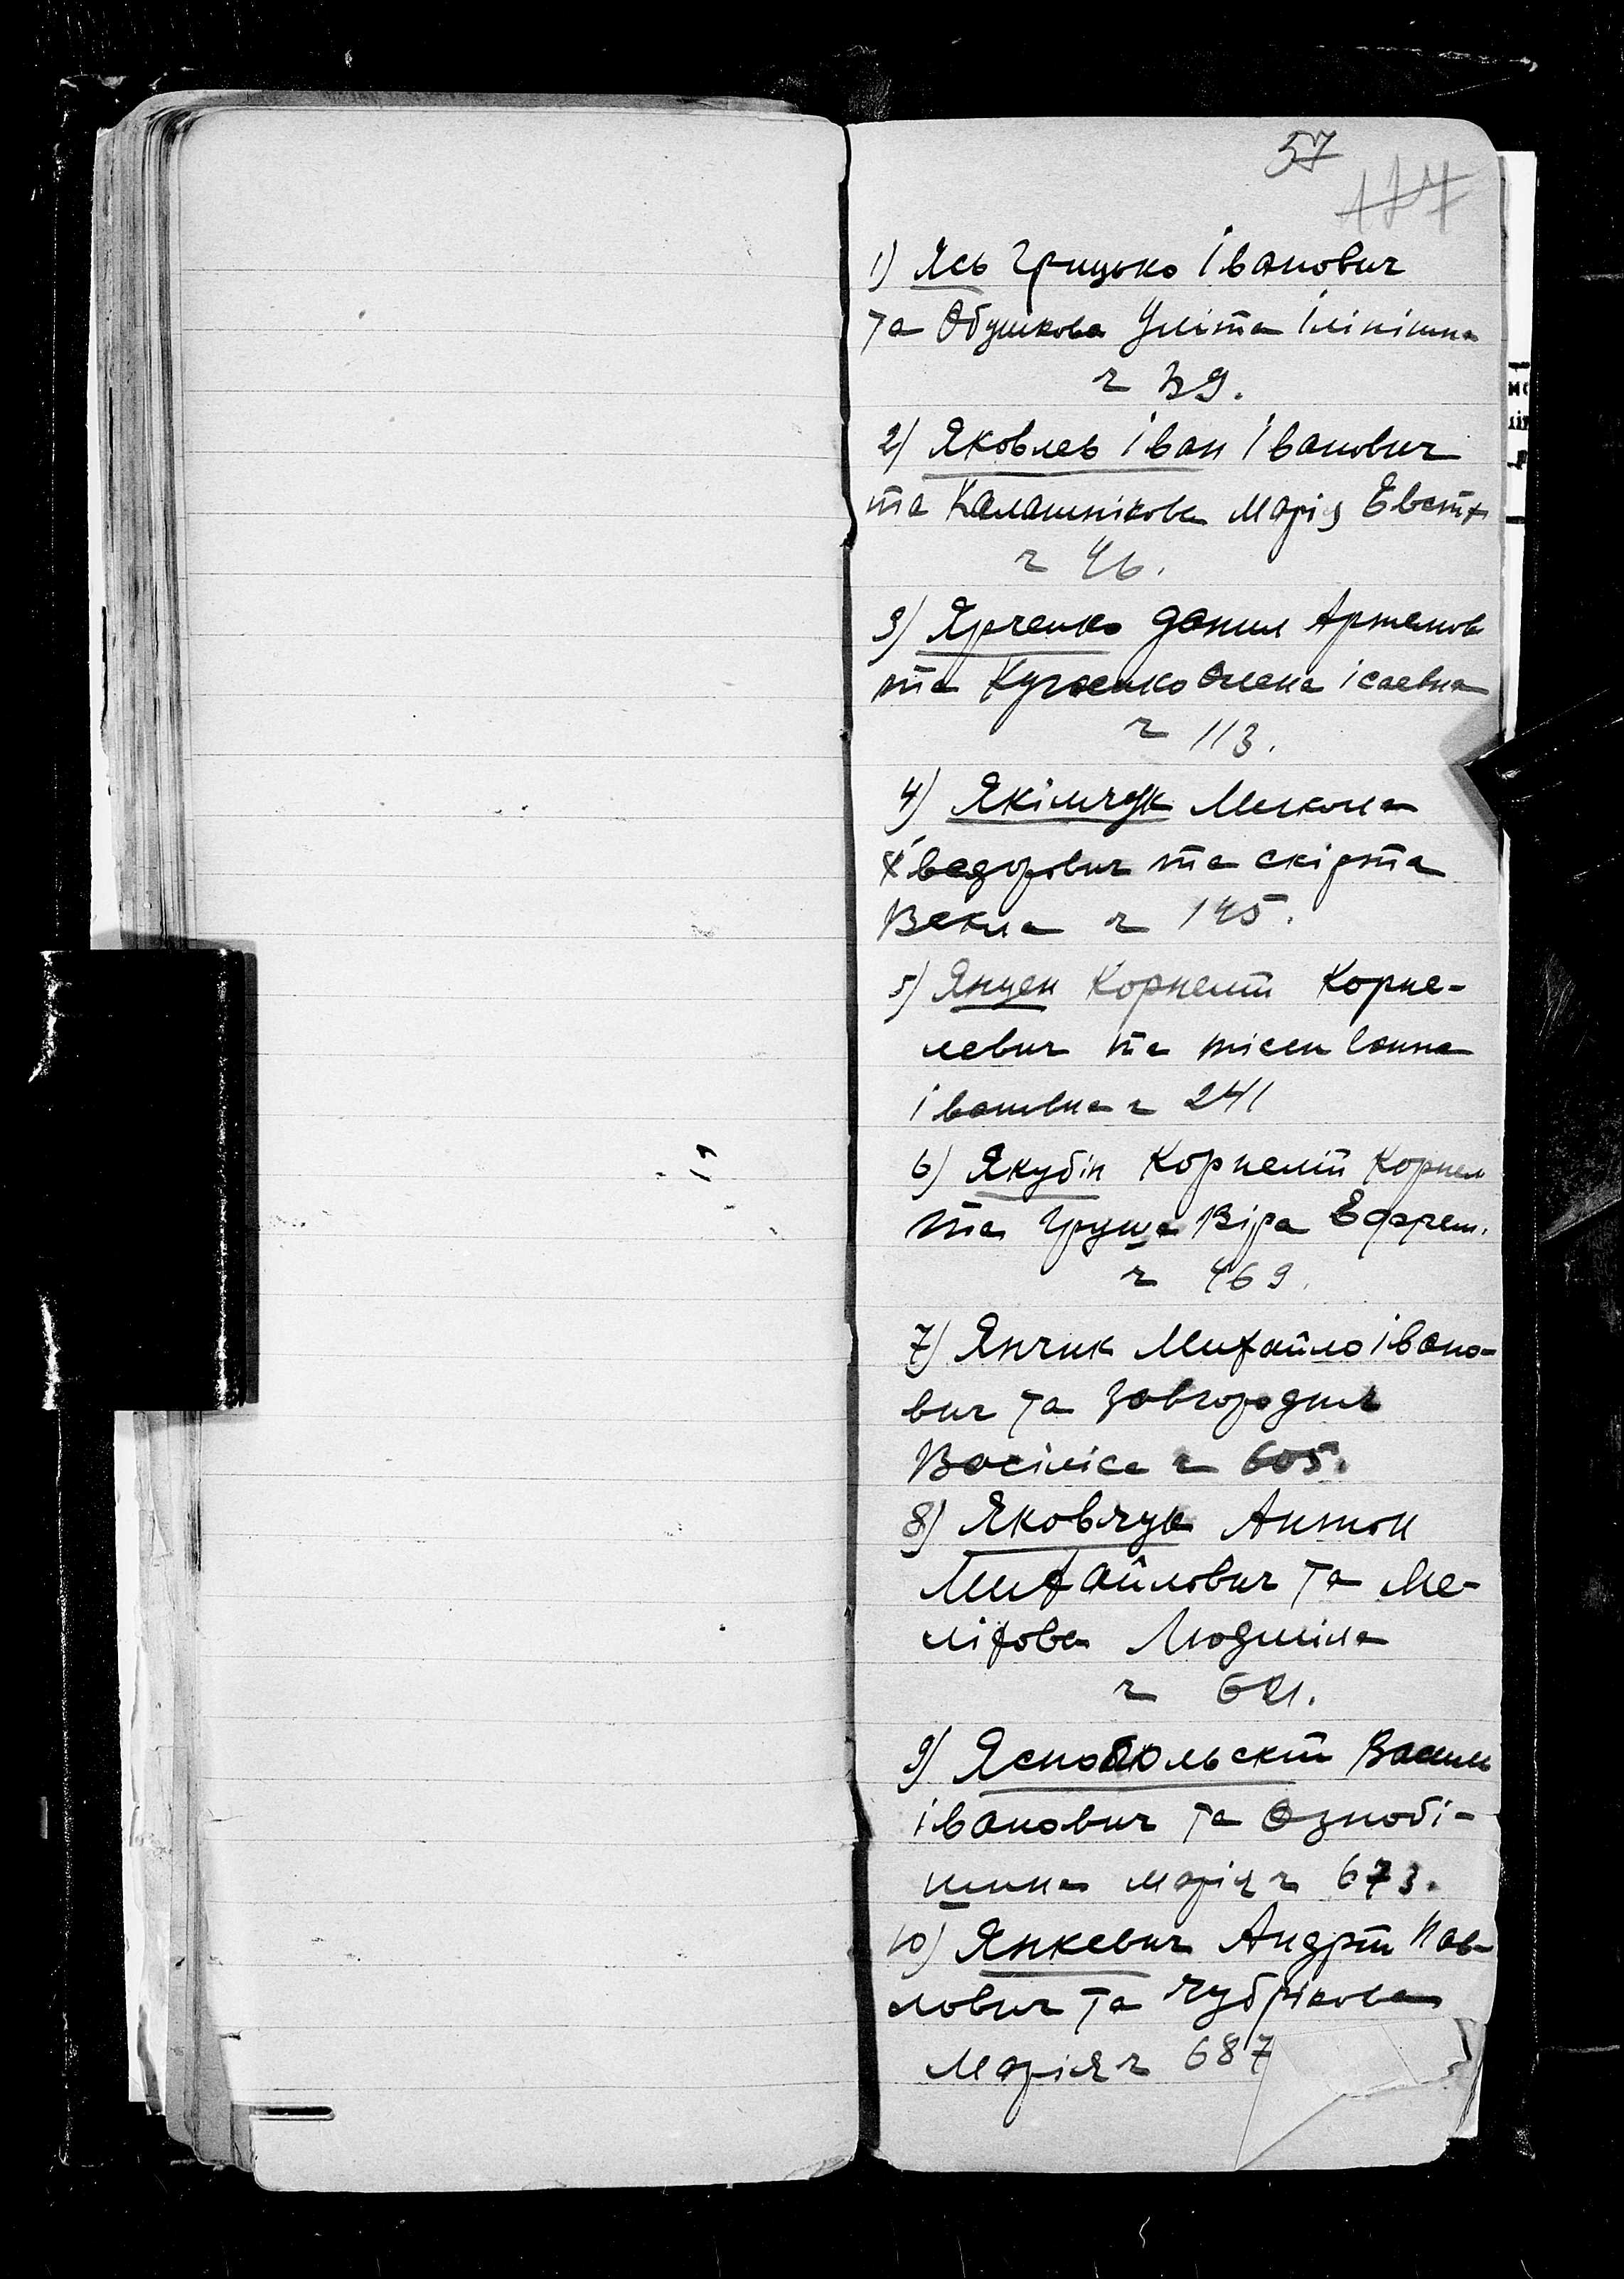 57
177
1) Ясь Грицько Іванович
та Обушкова Уліта Ілінішна
ч 39.
2) Яковлев Іван Іванович
та Калашнікова Марія Евст
ч 46.
3) Ярченко Данил Артемов
та Олена Ісаевна
ч 113.
4) Якімчук Микола
Хведорович та скірта
Векла ч 145.
5) Янцен Корнелій Корне-
левич та тісен Ганна
Івановна ч 241
6) Якубін Корнелій Корнел
та Груша Віра Ефрем.
ч 469.
7) Янчик Михайло Івано-
вич та Завгородня
Васіліса ч 605.
8) Яковчук Антон
Михайлович та Ме-
ліхова Людміла
ч 621.
9) Яснопольскій Василь
Іванович та Ознобі-
шина Марія ч 673.
10) Янкевич Андрій Пав-
лович та Чубрікова
Марія ч 687